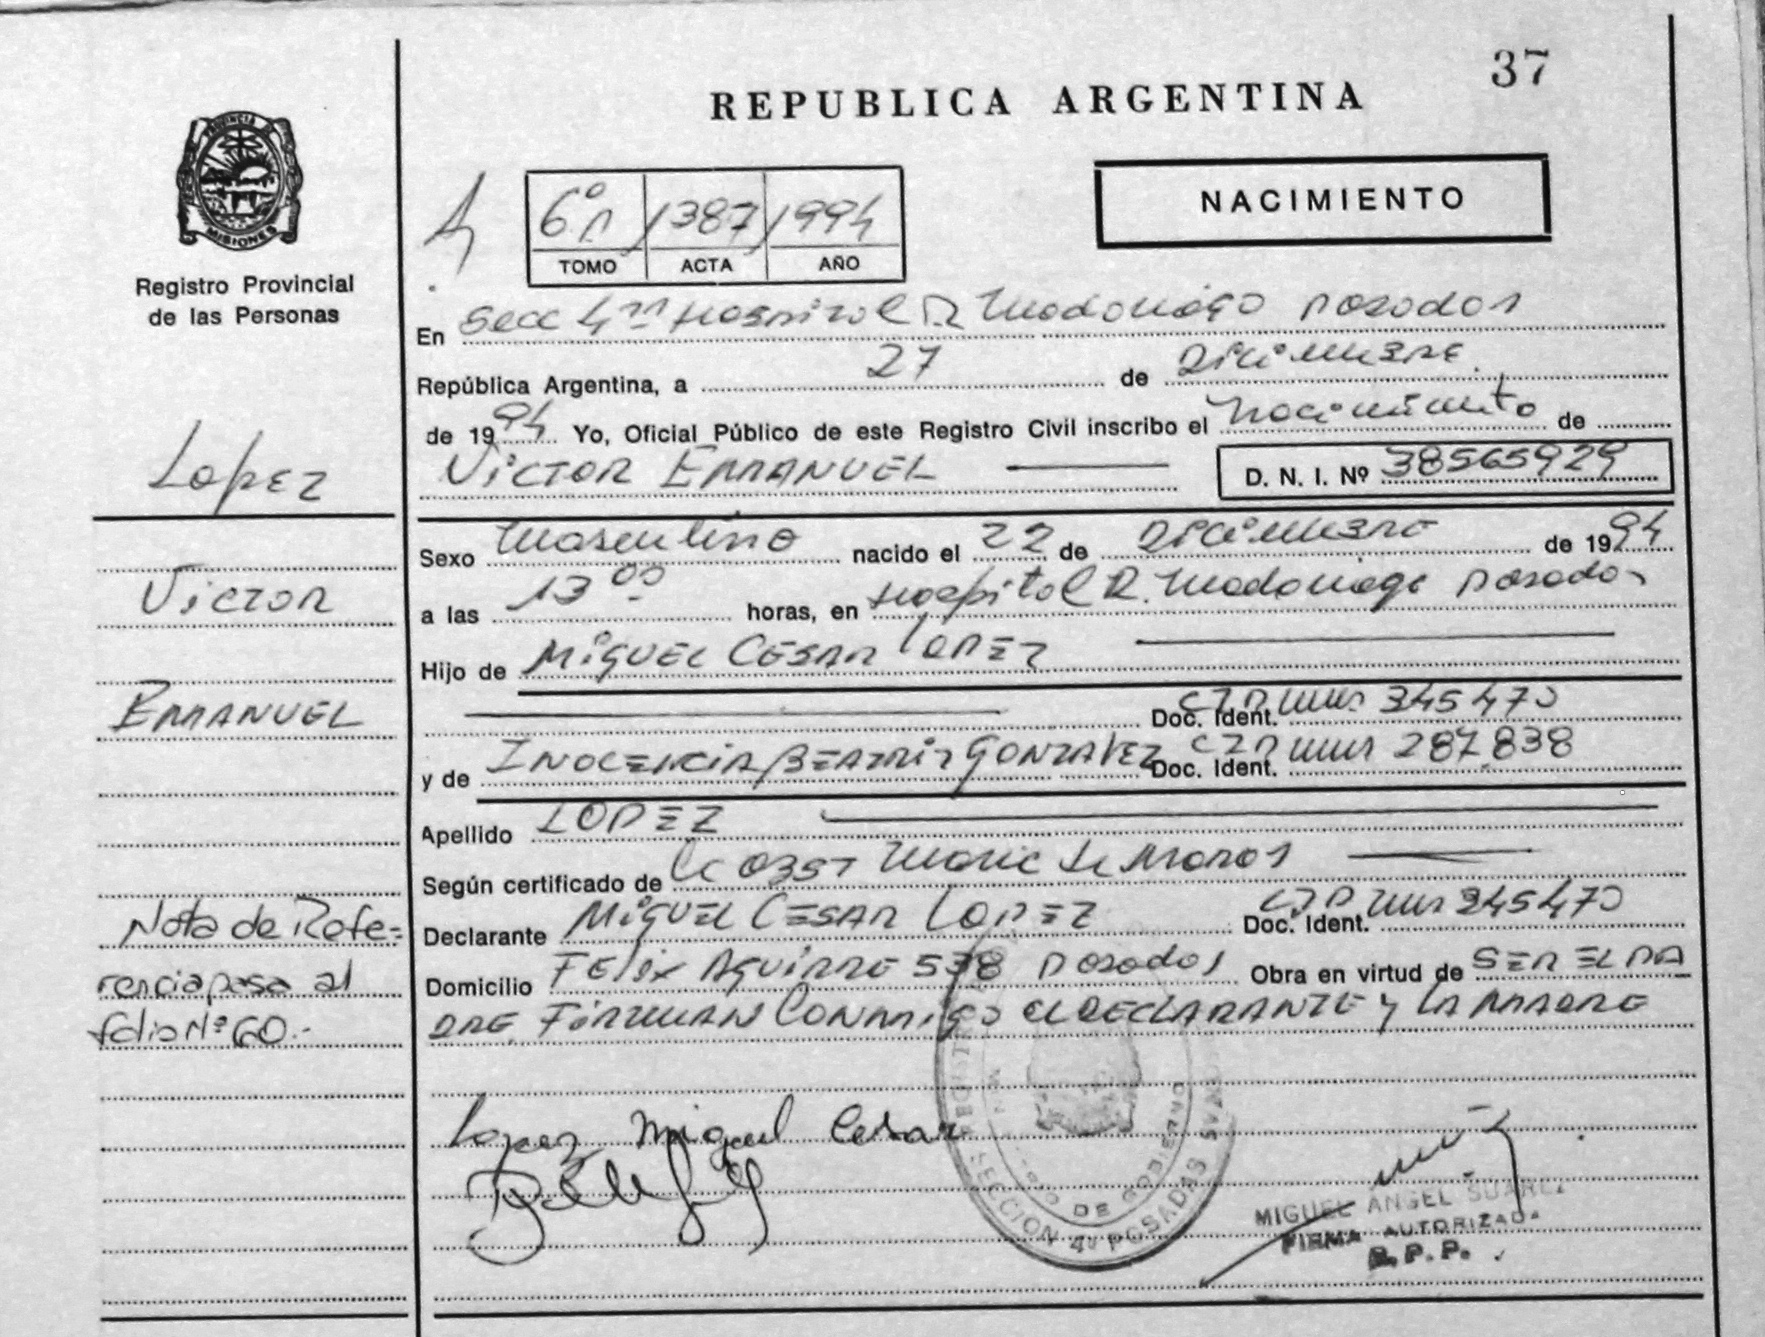 37
REPUBLICA ARGENTINA
NACIMIENTO
6º 1387 1994
TOMO ACTA AÑO
PROVINCIA DE
MISIONES
Registro Provincial
de las Personas
Lopez
Victor
Emmanuel
Nota de Refe=
rencia pasa al
folio Nº 60.-
En Secc 4ta Hospital R Madariaga Posadas
República Argentina, a 27 de Diciembre
de 1994 Yo, Oficial Público de este Registro Civil inscribo el nacimiento de
VICTOR EMMANUEL D. N. I. Nº 38565929
Sexo masculino nacido el 22 de Diciembre de 1994
a las 13 00 horas, en Hospital R. Madariaga Posadas
Hijo de MIGUEL CESAR LOPEZ
Doc. Ident. 345470
y de INOCENCIA BEATRIZ GONZALEZ Doc. Ident. 287.838
Apellido LOPEZ
Según certificado de
Declarante MIGUEL CESAR LOPEZ Doc. Ident. 345470
Domicilio FELIX AGUIRRE 538 Posadas Obra en virtud de SER EL PA
DRE. FIRMAN CONMIGO EL DECLARANTE y LA MADRE
Lopez Miguel Cesar
SECCION 4ª POSADAS
DE GOBIERNO
MIGUEL ANGEL SUAREZ
FIRMA AUTORIZADA
R. P. P.